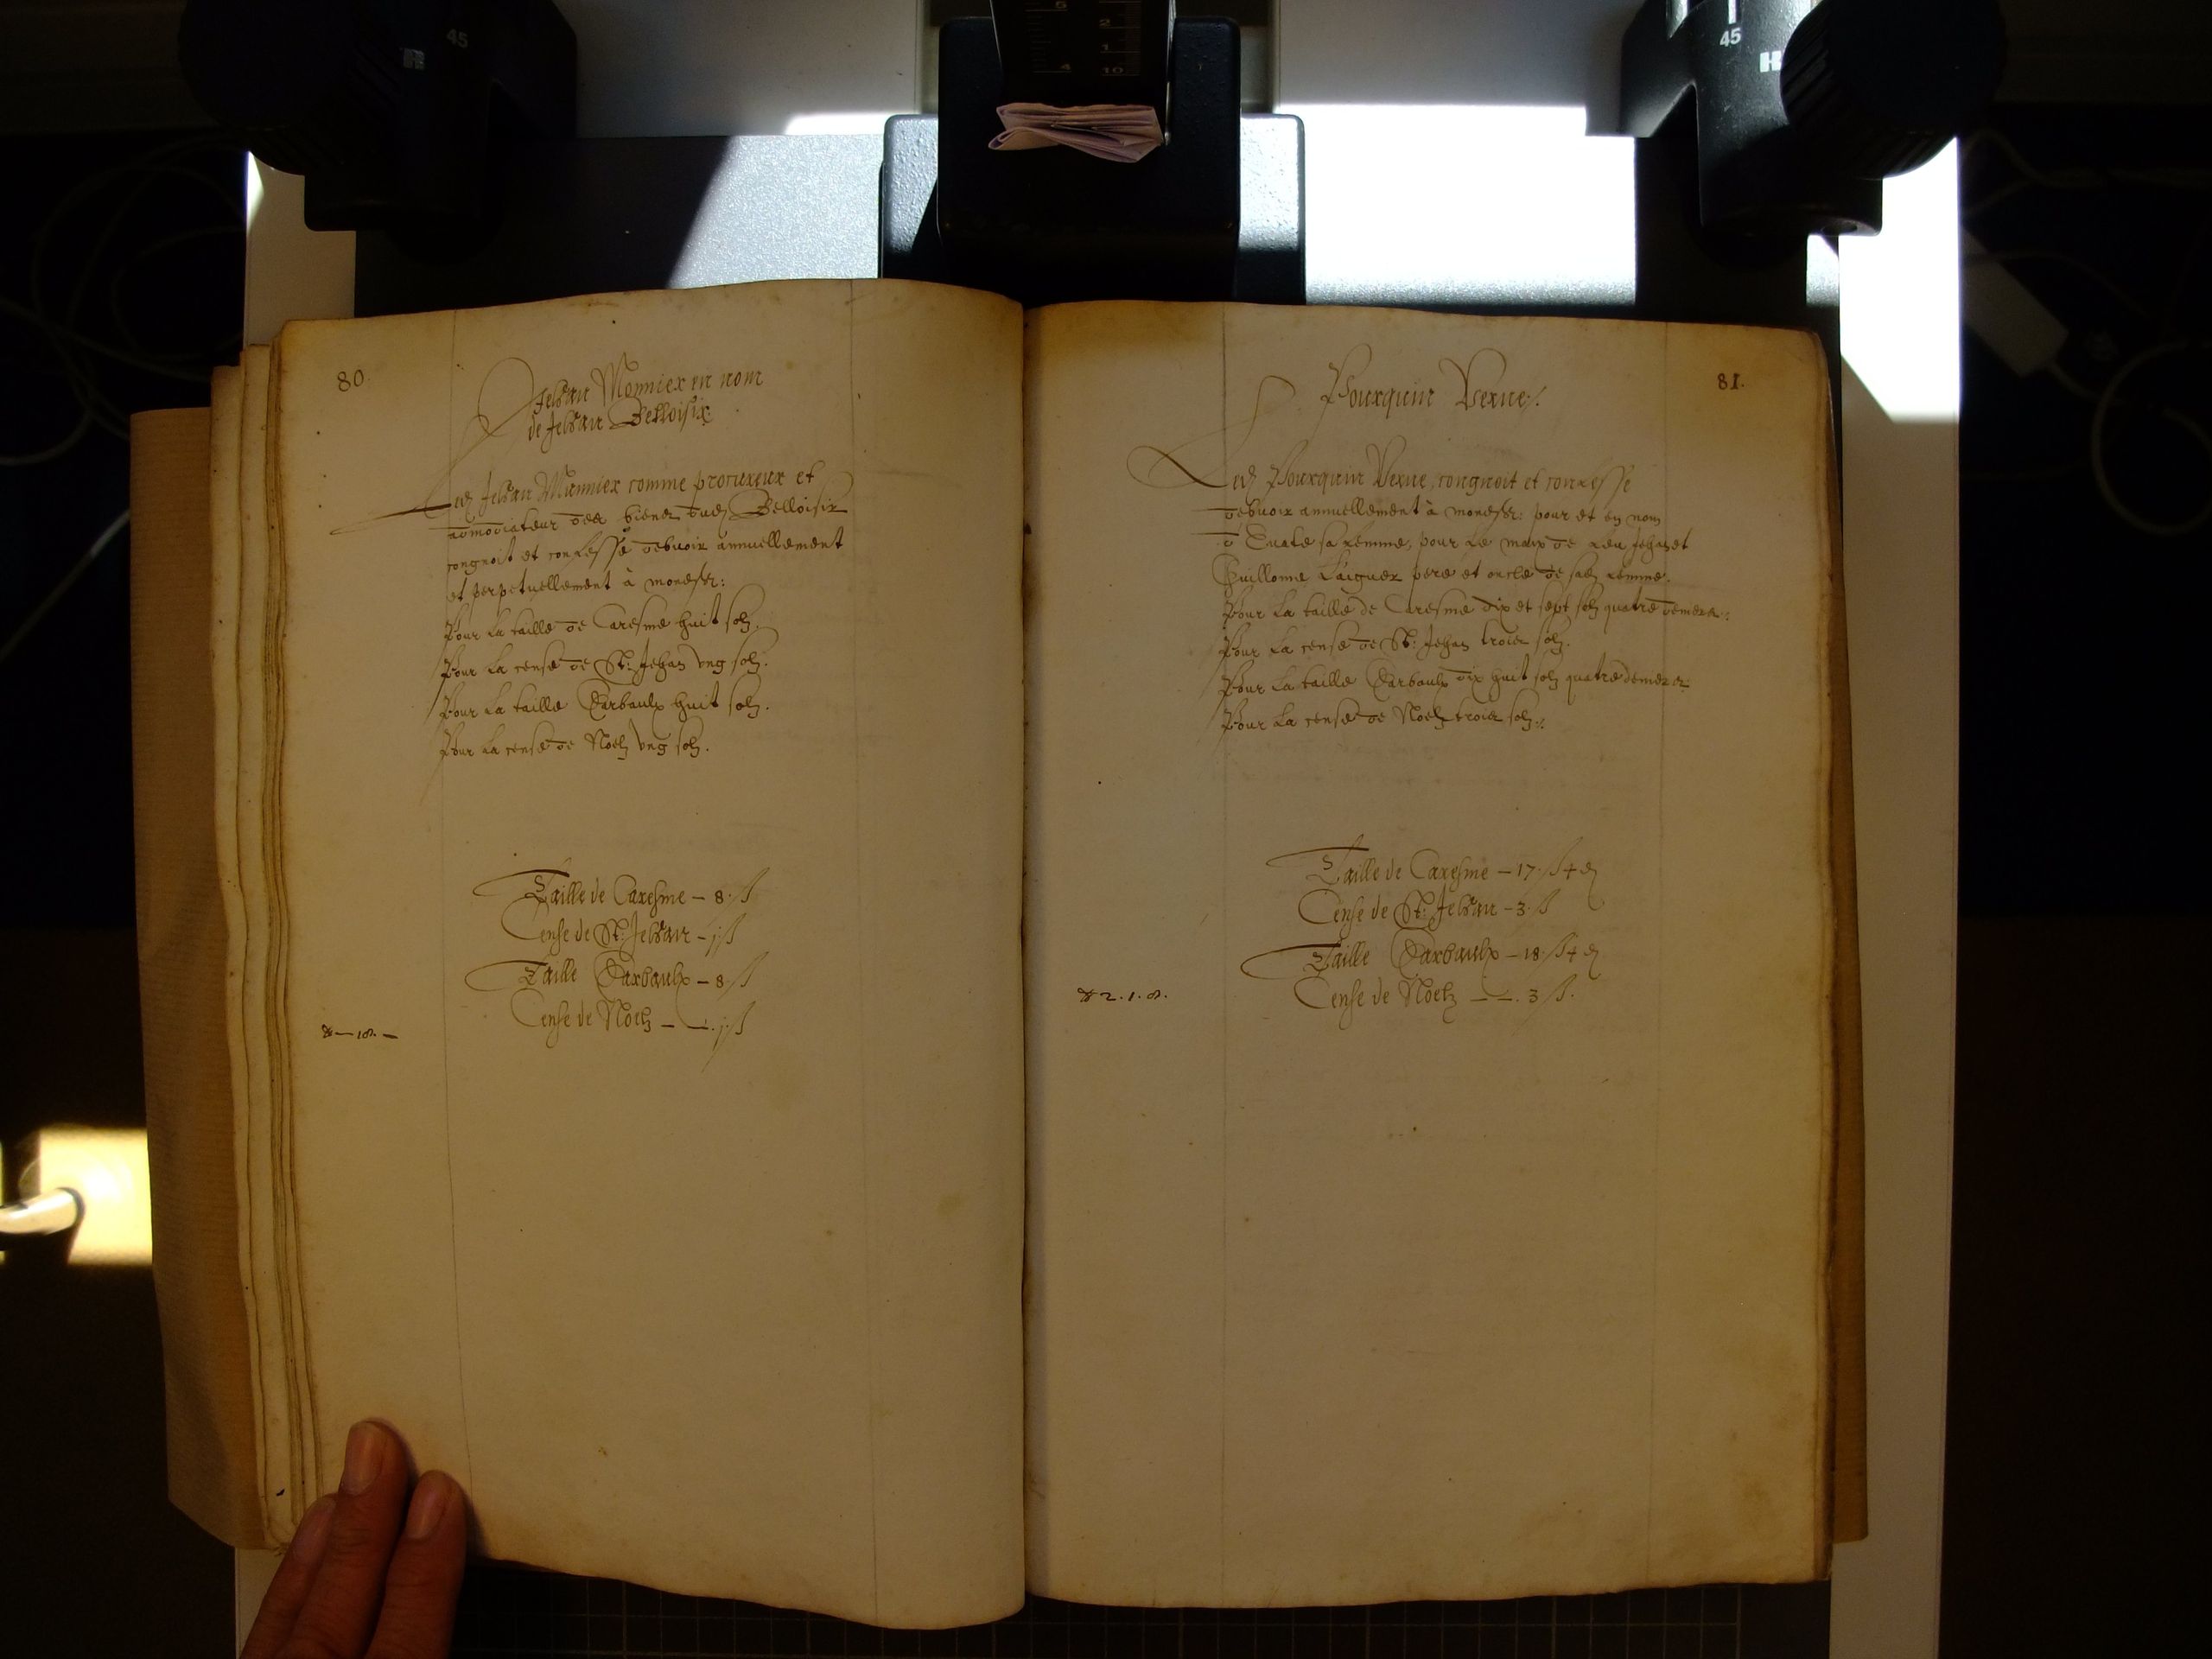 80
Jehan Monnier en nom
de Jehan Belloisir
Led Jehan Monnier comme procureur et
admodiateur des biens dud Belloisir
congnoit et confesse debuoir annuellement
et perpetuellement à mondsr:
Pour la taille de Caresme huit solz.
Pour la cense de St: Jehan vng solz.
Pour la taille Darbaulx huit solz.
Pour la cense de Noelz vng solz.
Taille de Caresme – 8. ß
Cense de St: Jehan – j. ß
Taille Darbaulx – 8. ß
Cense de Noelz – –. j. ß
– 18. –
81.
Pourquin Verne.
Led Pourquin Verne, congnoit et confesse
debuoir annuellement à mondsr: pour et en nom
sa femme, pour le maix de feu Jehan et
Guillome pere et oncle de sad femme.
Pour la taille de Caresme dix et sept solz quatre deniers.
Pour la cense de St: Jehan trois solz.
Pour la taille Darbaulx dix huit solz quatre deniers
Pour la cense de Noelz trois solz.
Taille de Caresme – 17. ß 4 d
Cense de St: Jehan – 3. ß
Taille Darbaulx – 18. ß 4 d
Cense de Noelz – –. 3 ß.
2. 1. 8.
45
45